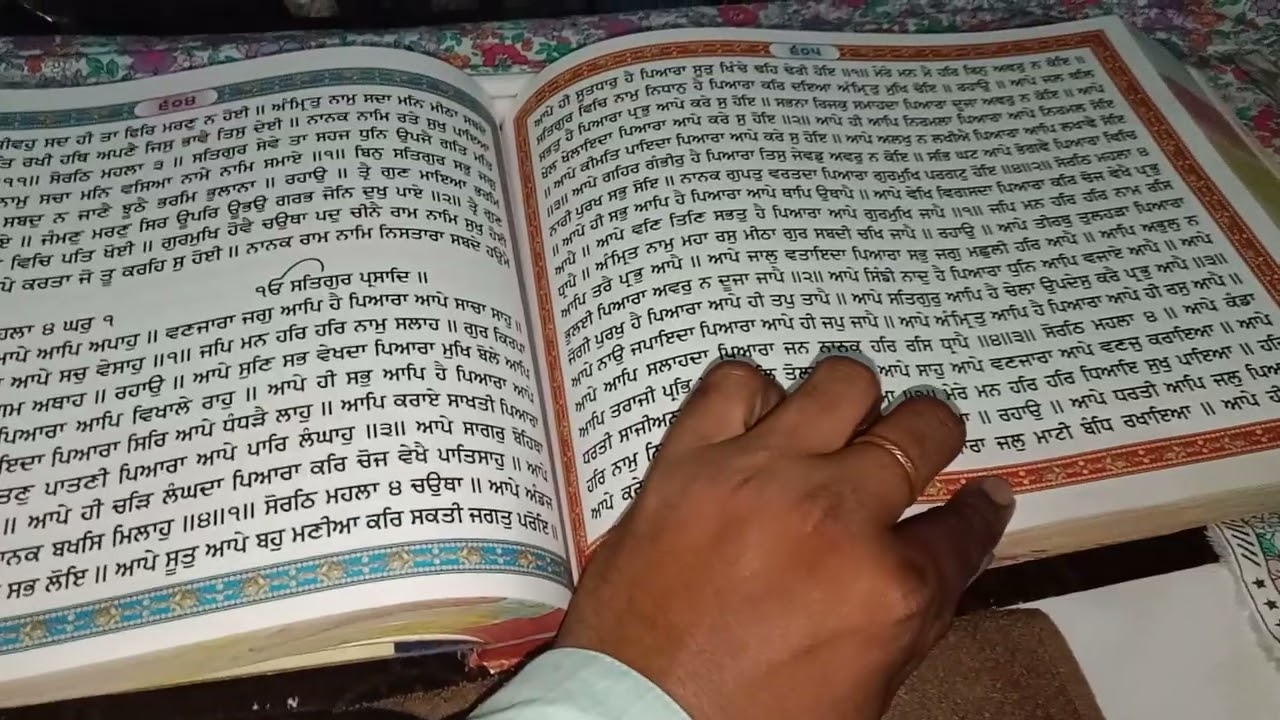 ੬੦੪
ਜੀਵਹੁ ਸਦ ਹੀ ਤਾ ਫਿਰਿ ਮਰਣੁ ਨ ਹੋਈ ॥ ਅੰਮ੍ਰਿਤ ਨਾਮੁ ਸਦਾ ਮਨਿ ਮੀਠਾ ਸਬਦੇ
ਰਖੀ ਹਥਿ ਅਪਣੈ ਜਿਸੁ ਭਾਵੈ ਤਿਸੁ ਦੇਈ ॥ ਨਾਨਕ ਨਾਮਿ ਰਤੇ ਸੁਖੁ ਪਾਇਆ
॥ ਸੋਰਠਿ ਮਹਲਾ ੩ ॥ ਸਤਿਗੁਰ ਸੇਵੇ ਤਾ ਸਹਜ ਧੁਨਿ ਉਪਜੈ ਗਤਿ ਮਤਿ
ਨਾਮੁ ਸਚਾ ਮਨਿ ਵਸਿਆ ਨਾਮੇ ਨਾਮਿ ਸਮਾਏ ॥੧॥ ਬਿਨੁ ਸਤਿਗੁਰ ਸਭੁ ਜਗੁ
ਸਬਦੁ ਨ ਜਾਣੈ ਝੂਠੈ ਭਰਮਿ ਭੁਲਾਨਾ ॥ ਰਹਾਉ ॥ ਤ੍ਰੈ ਗੁਣ ਮਾਇਆ ਭਰਮਿ
॥ ਜੰਮਣੁ ਮਰਣੁ ਸਿਰ ਊਪਰਿ ਊਭਉ ਗਰਭ ਜੋਨਿ ਦੁਖੁ ਪਾਏ ॥੨॥ ਤ੍ਰੈ ਗੁਣ
ਵਿਚਿ ਪਤਿ ਖੋਈ ॥ ਗੁਰਮੁਖਿ ਹੋਵੈ ਚਉਥਾ ਪਦੁ ਚੀਨੈ ਰਾਮ ਨਾਮਿ ਸੁਖੁ ਹੋਈ
ਕਰਤਾ ਜੋ ਤੂ ਕਰਹਿ ਸੁ ਹੋਈ ॥ ਨਾਨਕ ਰਾਮ ਨਾਮਿ ਨਿਸਤਾਰਾ ਸਬਦੇ ਹਉਮੈ
ੴ ਸਤਿਗੁਰ ਪ੍ਰਸਾਦਿ ॥
ਮਹਲਾ ੪ ਘਰੁ ੧
ਆਪੇ ਆਪਿ ਅਪਾਹੁ ॥ ਵਣਜਾਰਾ ਜਗੁ ਆਪਿ ਹੈ ਪਿਆਰਾ ਆਪੇ ਸਾਚਾ ਸਾਹੁ ॥
ਆਪੇ ਸਚੁ ਵੇਸਾਹੁ ॥੧॥ ਜਪਿ ਮਨ ਹਰਿ ਹਰਿ ਨਾਮੁ ਸਲਾਹ ॥ ਗੁਰ ਕਿਰਪਾ
ਅਥਾਹ ॥ ਰਹਾਉ ॥ ਆਪੇ ਸੁਣਿ ਸਭ ਵੇਖਦਾ ਪਿਆਰਾ ਮੁਖਿ ਬੋਲੇ ਆਪਿ
ਪਿਆਰਾ ਆਪਿ ਵਿਖਾਲੇ ਰਾਹੁ ॥ ਆਪੇ ਹੀ ਸਭੁ ਆਪਿ ਹੈ ਪਿਆਰਾ ਆਪੇ
ਪਿਆਰਾ ਸਿਰਿ ਆਪੇ ਧੰਧੜੈ ਲਾਹੁ ॥ ਆਪਿ ਕਰਾਏ ਸਾਖਤੀ ਪਿਆਰਾ
ਪਾਤਣੀ ਪਿਆਰਾ ਆਪੇ ਪਾਰਿ ਲੰਘਾਹੁ ॥੩॥ ਆਪੇ ਸਾਗਰੁ ਬੋਹਿਥਾ
॥ ਆਪੇ ਹੀ ਚੜਿ ਲੰਘਦਾ ਪਿਆਰਾ ਕਰਿ ਚੋਜ ਵੇਖੈ ਪਾਤਿਸਾਹੁ ॥ ਆਪੇ
ਬਖਸਿ ਮਿਲਾਹੁ ॥੪॥੧॥ ਸੋਰਠਿ ਮਹਲਾ ੪ ਚਉਥਾ ॥ ਆਪੇ ਅੰਡਜ
ਸਭ ਲੋਇ ॥ ਆਪੇ ਸੂਤੁ ਆਪੇ ਬਹੁ ਮਣੀਆ ਕਰਿ ਸਕਤੀ ਜਗਤੁ ਪਰੋਇ ॥
੬੦੫
ਆਪੇ ਹੀ ਸੂਤਧਾਰੁ ਹੈ ਪਿਆਰਾ ਸੂਤੁ ਖਿੰਚੇ ਢਹਿ ਢੇਰੀ ਹੋਇ ॥੧॥ ਮੇਰੇ ਮਨ ਮੈ ਹਰਿ ਬਿਨੁ ਅਵਰੁ ਨ ਕੋਇ ॥
ਸਤਿਗੁਰ ਵਿਚਿ ਨਾਮੁ ਨਿਧਾਨੁ ਹੈ ਪਿਆਰਾ ਕਰਿ ਦਇਆ ਅੰਮ੍ਰਿਤੁ ਮੁਖਿ ਚੋਇ ॥ ਰਹਾਉ ॥ ਆਪੇ ਜਲ ਥਲਿ
ਸਭਤੁ ਹੈ ਪਿਆਰਾ ਪ੍ਰਭੁ ਆਪੇ ਕਰੇ ਸੁ ਹੋਇ ॥ ਸਭਨਾ ਰਿਜਕੁ ਸਮਾਹਦਾ ਪਿਆਰਾ ਦੂਜਾ ਅਵਰੁ ਨ ਕੋਇ ॥ ਆਪੇ
ਖੇਲ ਖੇਲਾਇਦਾ ਪਿਆਰਾ ਆਪੇ ਕਰੇ ਸੁ ਹੋਇ ॥੨॥ ਆਪੇ ਹੀ ਆਪਿ ਨਿਰਮਲਾ ਪਿਆਰਾ ਆਪੇ ਨਿਰਮਲ ਸੋਇ
॥ ਆਪੇ ਕੀਮਤਿ ਪਾਇਦਾ ਪਿਆਰਾ ਆਪੇ ਕਰੇ ਸੁ ਹੋਇ ॥ ਆਪੇ ਅਲਖੁ ਨ ਲਖੀਐ ਪਿਆਰਾ ਆਪਿ ਲਖਾਵੈ ਸੋਇ
॥੩॥ ਆਪੇ ਗਹਿਰ ਗੰਭੀਰੁ ਹੈ ਪਿਆਰਾ ਤਿਸੁ ਜੇਵਡੁ ਅਵਰੁ ਨ ਕੋਇ ॥ ਸਭਿ ਘਟ ਆਪੇ ਭੋਗਵੈ ਪਿਆਰਾ ਵਿਚਿ
ਨਾਰੀ ਪੁਰਖ ਸਭੁ ਸੋਇ ॥ ਨਾਨਕ ਗੁਪਤੁ ਵਰਤਦਾ ਪਿਆਰਾ ਗੁਰਮੁਖਿ ਪਰਗਟੁ ਹੋਇ ॥੪॥੨॥ ਸੋਰਠਿ ਮਹਲਾ ੪
॥ ਆਪੇ ਹੀ ਸਭੁ ਆਪਿ ਹੈ ਪਿਆਰਾ ਆਪੇ ਥਾਪਿ ਉਥਾਪੈ ॥ ਆਪੇ ਵੇਖਿ ਵਿਗਸਦਾ ਪਿਆਰਾ ਕਰਿ ਚੋਜ ਵੇਖੈ ਪ੍ਰਭੁ
ਆਪੈ ॥ ਆਪੇ ਵਣਿ ਤਿਣਿ ਸਭਤੁ ਹੈ ਪਿਆਰਾ ਆਪੇ ਗੁਰਮੁਖਿ ਜਾਪੈ ॥੧॥ ਜਪਿ ਮਨ ਹਰਿ ਹਰਿ ਨਾਮ ਰਸਿ
ਧ੍ਰਾਪੈ ॥ ਅੰਮ੍ਰਿਤ ਨਾਮੁ ਮਹਾ ਰਸੁ ਮੀਠਾ ਗੁਰ ਸਬਦੀ ਚਖਿ ਜਾਪੈ ॥ ਰਹਾਉ ॥ ਆਪੇ ਤੀਰਥੁ ਤੁਲਹੜਾ ਪਿਆਰਾ
ਆਪਿ ਤਰੈ ਪ੍ਰਭੁ ਆਪੈ ॥ ਆਪੇ ਜਾਲੁ ਵਤਾਇਦਾ ਪਿਆਰਾ ਸਭੁ ਜਗੁ ਮਛੁਲੀ ਹਰਿ ਆਪੈ ॥ ਆਪਿ ਅਭੁਲੁ ਨ
ਭੁਲਈ ਪਿਆਰਾ ਅਵਰੁ ਨ ਦੂਜਾ ਜਾਪੈ ॥੨॥ ਆਪੇ ਸਿੰਙੀ ਨਾਦੁ ਹੈ ਪਿਆਰਾ ਧੁਨਿ ਆਪਿ ਵਜਾਏ ਆਪੈ ॥ ਆਪੇ
ਜੋਗੀ ਪੁਰਖੁ ਹੈ ਪਿਆਰਾ ਆਪੇ ਹੀ ਤਪੁ ਤਾਪੈ ॥ ਆਪੇ ਸਤਿਗੁਰੁ ਆਪਿ ਹੈ ਚੇਲਾ ਉਪਦੇਸੁ ਕਰੈ ਪ੍ਰਭੁ ਆਪੈ ॥੩॥
ਆਪੇ ਨਾਉ ਜਪਾਇਦਾ ਪਿਆਰਾ ਆਪੇ ਹੀ ਜਪੁ ਜਾਪੈ ॥ ਆਪੇ ਅੰਮ੍ਰਿਤੁ ਆਪਿ ਹੈ ਪਿਆਰਾ ਆਪੇ ਹੀ ਰਸੁ ਆਪੈ ॥
ਆਪੇ ਆਪਿ ਸਲਾਹਦਾ ਪਿਆਰਾ ਜਨ ਨਾਨਕ ਹਰਿ ਰਸਿ ਧ੍ਰਾਪੈ ॥੪॥੩॥ ਸੋਰਠਿ ਮਹਲਾ ੪ ॥ ਆਪੇ ਕੰਡਾ
ਆਪਿ ਤਰਾਜੀ ਪ੍ਰਭਿ ਤੋਲਿ ਆਪੇ ਸਾਹੁ ਆਪੇ ਵਣਜਾਰਾ ਆਪੇ ਵਣਜੁ ਕਰਾਇਆ ॥ ਆਪੇ
ਧਰਤੀ ਸਾਜੀਅਨੁ ॥੧॥ ਮੇਰੇ ਮਨ ਹਰਿ ਹਰਿ ਧਿਆਇ ਸੁਖੁ ਪਾਇਆ ॥ ਹਰਿ
ਹਰਿ ਨਾਮੁ ॥ ਰਹਾਉ ॥ ਆਪੇ ਧਰਤੀ ਆਪਿ ਜਲੁ
ਆਪੇ ਕਰੇ ਜਲੁ ਮਾਟੀ ਬੰਧਿ ਰਖਾਇਆ ॥ ਆਪੇ ਹੀ